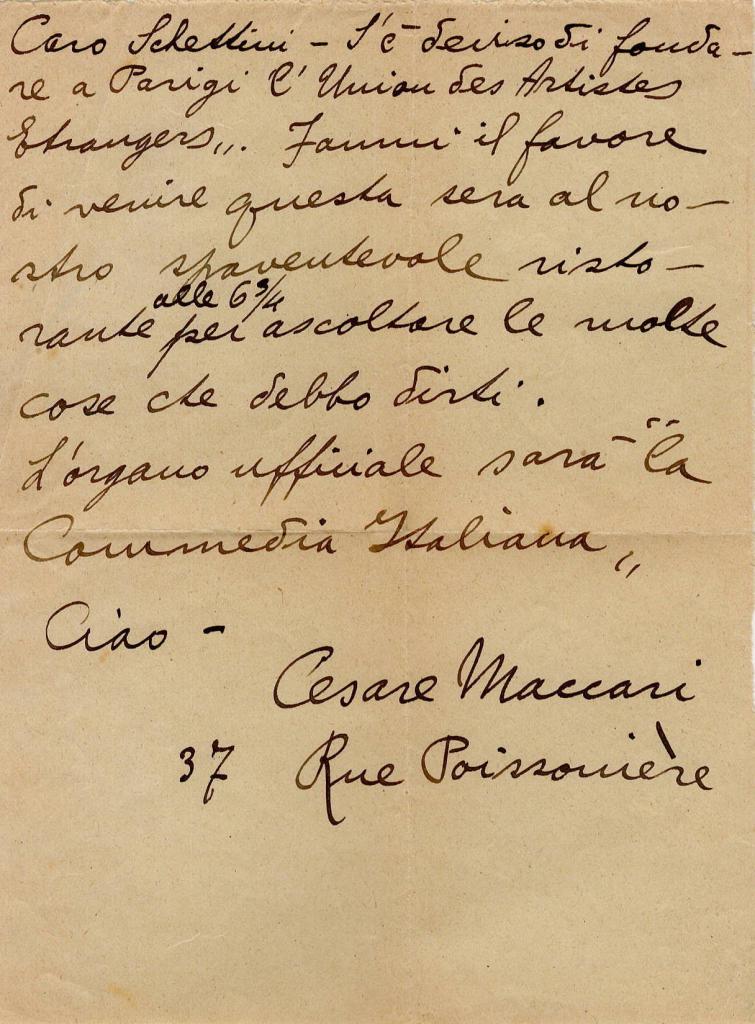 Caro Schettini – S'è deciso di fonda-
re a Parigi l' Union des Artistes
Etrangers„. Fammi il favore
di venire questa sera al no-
stro spaventevole risto-
alle 6 3/4
rante per ascoltare le molte
cose che debbo dirti.
L'organo ufficiale sarà "la
Commedia Italiana„
Ciao –
Cesare Maccari
37 Rue Poissonière